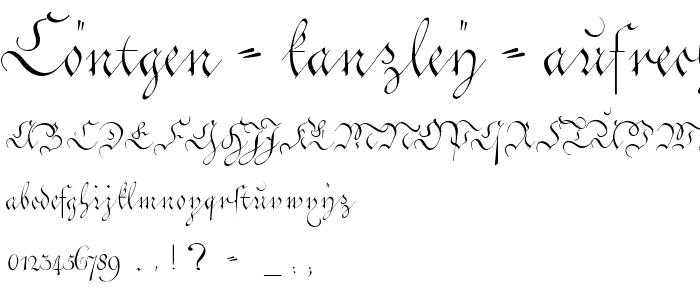 Cöntgen = kanzleÿ = aufrec
ABCDEFGHIJKLMNOPQRSTUVW
abcdefghijklmnopqrstuvwxÿz
0123456789 . , ! ? = _ : ;